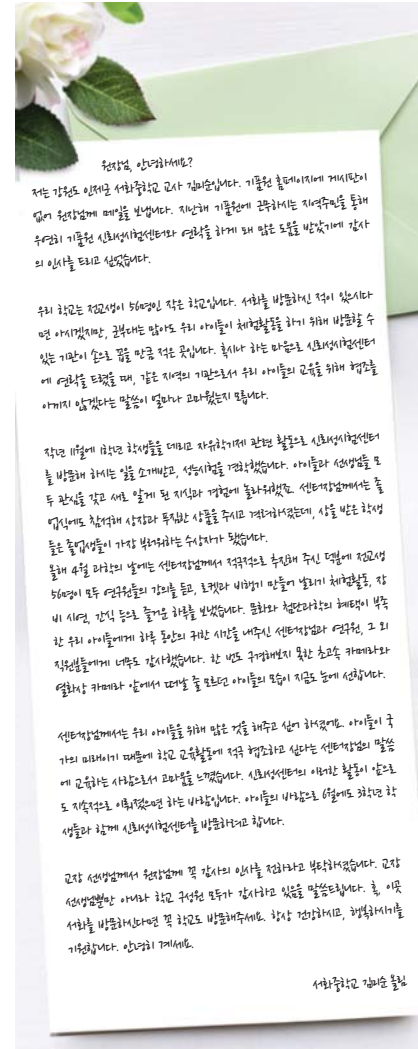 원장님, 안녕하세요?
저는 강원도 인제군 서화중학교 교사 김미순입니다. 기품원 홈페이지에 게시판이
없어 원장님께 메일을 보냅니다. 지난해 기품원에 근무하시는 지역주민을 통해
우연히 기품원 신뢰성시험센터와 연락을 하게 돼 많은 도움을 받았기에 감사
의 인사를 드리고 싶었습니다.
우리 학교는 전교생이 56명인 작은 학교입니다. 서화를 방문하신 적이 있으시다
면 아시겠지만, 군부대는 많아도 우리 아이들이 체험활동을 하기 위해 방문할 수
있는 기관이 손으로 꼽을 만큼 적은 곳입니다. 혹시나 하는 마음으로 신뢰성시험센터
에 연락을 드렸을 때, 같은 지역의 기관으로서 우리 아이들의 교육을 위해 협조를
아끼지 않겠다는 말씀이 얼마나 고마웠는지 모릅니다.
작년 11월에 1학년 학생들을 데리고 자유학기제 관련 활동으로 신뢰성시험센터
를 방문해 하시는 일을 소개받고, 성능시험을 견학했습니다. 아이들과 선생님들 모
두 관심을 갖고 새로 알게 된 지식과 경험에 놀라워했죠. 센터장님께서는 졸
업식에도 참석해 상장과 푸짐한 상품을 주시고 격려하셨는데, 상을 받은 학생
들은 졸업생들이 가장 부러워하는 수상자가 됐습니다.
올해 4월 과학의 날에는 센터장님께서 적극적으로 추진해 주신 덕분에 전교생
56명이 모두 연구원들의 강의를 듣고, 로켓과 비행기 만들어 날리기 체험활동, 장
비 시연, 간식 등으로 즐거운 하루를 보냈습니다. 문화와 첨단과학의 혜택이 부족
한 우리 아이들에게 하루 동안의 귀한 시간을 내주신 센터장님과 연구원, 그 외
직원분들에게 너무도 감사했습니다. 한 번도 구경해보지 못한 초고속 카메라와
열화상 카메라 앞에서 떠날 줄 모르던 아이들의 모습이 지금도 눈에 선합니다.
센터장님께서는 우리 아이들을 위해 많은 것을 해주고 싶어 하셨어요. 아이들이 국
가의 미래이기 때문에 학교 교육활동에 적극 협조하고 싶다는 센터장님의 말씀
에 교육하는 사람으로서 고마움을 느꼈습니다. 신뢰성센터의 이러한 활동이 앞으로
도 지속적으로 이뤄졌으면 하는 바람입니다. 아이들의 바람으로 6월에도 3학년 학
생들과 함께 신뢰성시험센터를 방문하려고 합니다.
교장 선생님께서 원장님께 꼭 감사의 인사를 전하라고 부탁하셨습니다. 교장
선생님뿐만 아니라 학교 구성원 모두가 감사하고 있음을 말씀드립니다. 혹, 이곳
서화를 방문하신다면 꼭 학교도 방문해주세요. 항상 건강하시고, 행복하시기를
기원합니다. 안녕히 계세요.
서화중학교 김미순 올림